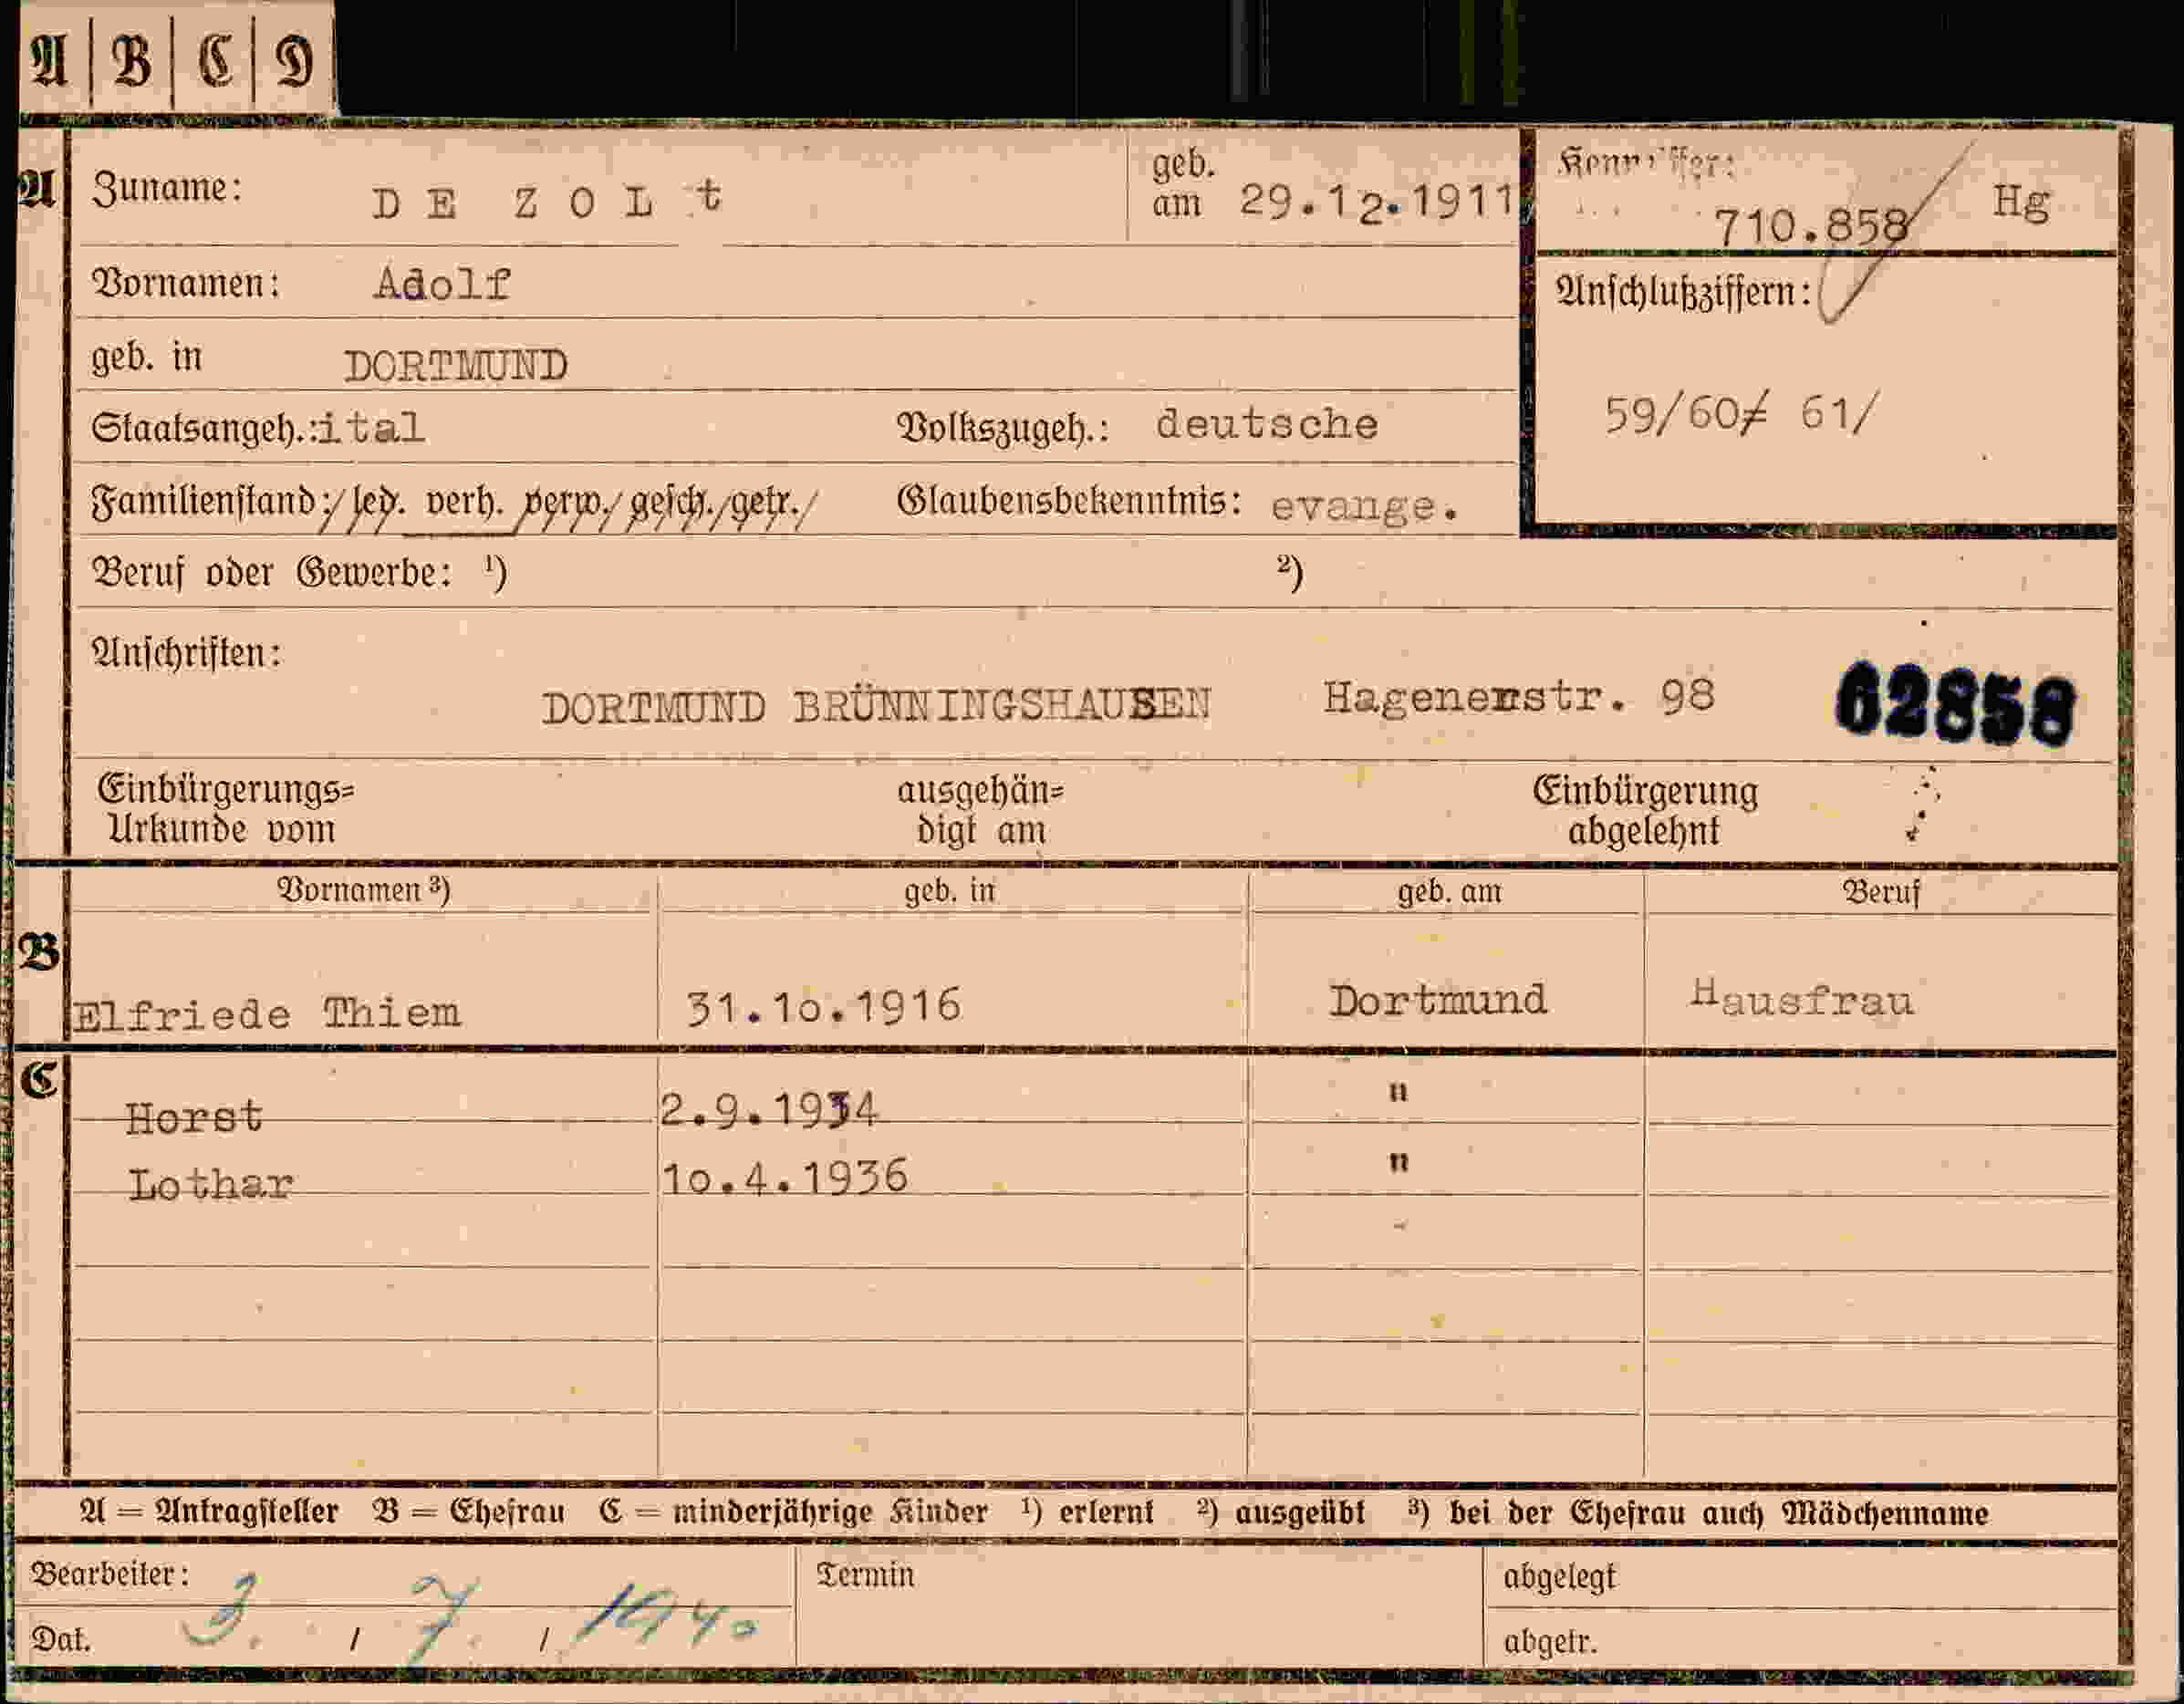 A | B | C | D
A Zuname: D E Z O L t geb. am 29.12.1911
Kennziffer: 710.858 Hg
Vornamen: Adolf
Anschlußziffern:
geb. in DORTMUND
59/60≠ 61/
Staatsangeh.: ital Volkszugeh.: deutsche
Familienstand: led. verh. verw. gesch. getr. Glaubensbekenntnis: evange.
Beruf oder Gewerbe: ¹) ²)
Anschriften:
DORTMUND BRÜNNINGSHAUSEN Hagenerstr. 98 62858
Einbürgerungs= ausgehän= Einbürgerung
Urkunde vom digt am abgelehnt
Vornamen ³) geb. in geb. am Beruf
B
Elfriede Thiem 31.10.1916 Dortmund Hausfrau
C
Horst 2.9.1934 "
Lothar 10.4.1936 "
A = Antragsteller B = Ehefrau C = minderjährige Kinder ¹) erlernt ²) ausgeübt ³) bei der Ehefrau auch Mädchenname
Bearbeiter: Termin abgelegt
Dat. 3. / 7. / 1940 abgetr.